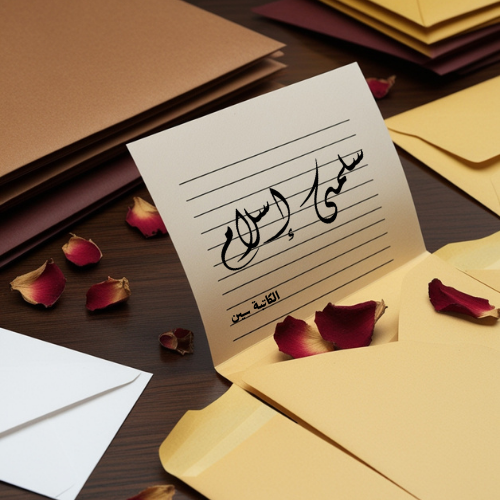 سلمى إسلام
الكاتبة سين